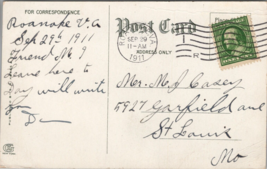 FOR CORRESPONDENCE
Post Card
ADDRESS ONLY
Roanoke Va
Sep 29th 1911
Friend M J
Leave here to
day will write
you
SEP 29
11-AM
1911
Mr. M J Casey
5927 Garfield ave
St Louis
Mo